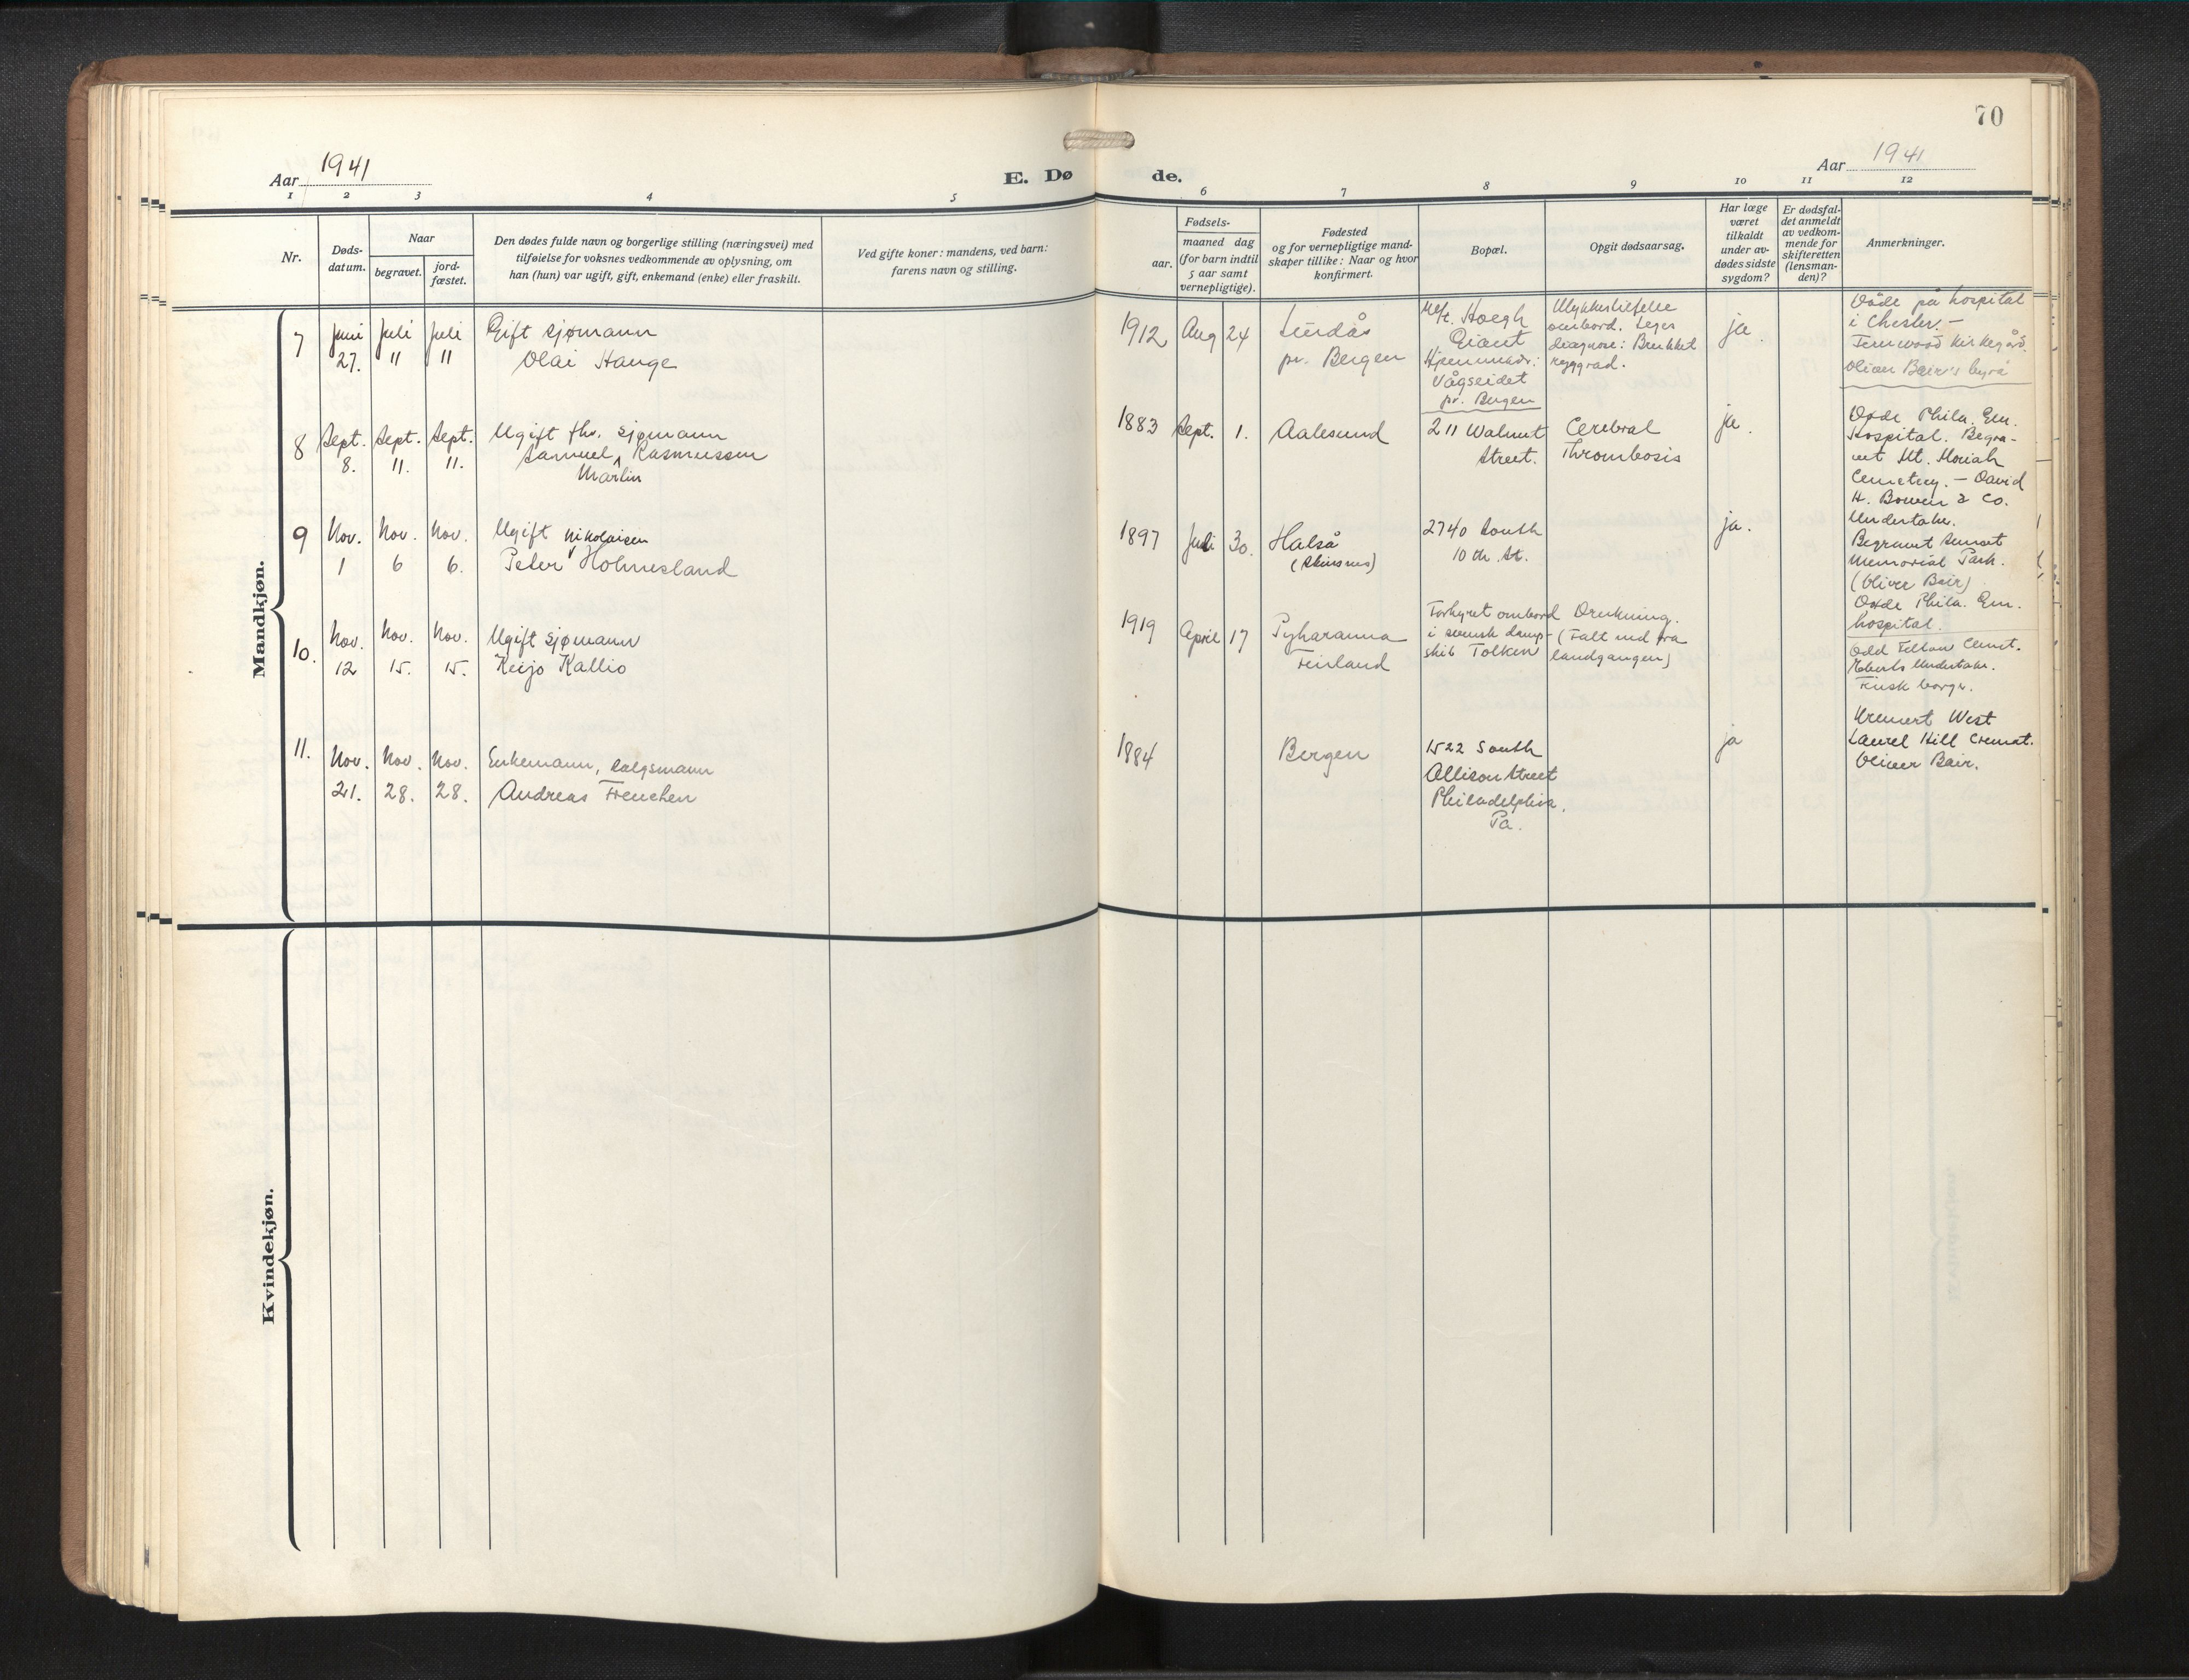 70
Aar 1941
E. Dø de.
Aar 1941
1 2 3 4 5 6 7 8 9 10 11 12
Nr.
Døds-
datum.
Naar
begravet.
jord-
fæstet.
Den dødes fulde navn og borgerlige stilling (næringsvei) med
tilføielse for voksnes vedkommende av oplysning, om
han (hun) var ugift, gift, enkemand (enke) eller fraskilt.
Ved gifte koner: mandens, ved barn:
farens navn og stilling.
Fødsels-
aar.
maaned dag
(for barn indtil
5 aar samt
vernepligtige).
Fødested
og for vernepligtige mand-
skaper tillike: Naar og hvor
konfirmert.
Bopæl.
Opgit dødsaarsag.
Har læge
været
tilkaldt
under av-
dødes sidste
sygdom?
Er dødsfal-
det anmeldt
av vedkom-
mende for
skifteretten
(lensman-
den)?
Anmerkninger.
Mandkjøn.
7
Juni
27.
Juli
"
Juli
"
Gift sjømann
Olai Hauge
1912
Aug
24
Lindås
pr. Bergen
M/t. Hoegh
Giant
Hjemmadr:
Vågseidet
pr. Bergen
Ulykkestilfelle
ombord. Leges
diagnose: Brukket
ryggrad.
ja.
Døde på hospital
i Chester.-
Fernwood kirkegård.
Oliver Bair's byrå
8
Sept.
8.
Sept.
11.
Sept.
11.
Ugift fhv. sjømann
Samuel Rasmussen
Martin
1883
Sept.
1.
Aalesund
211 Walnut
Street.
Cerebral
Thrombosis
ja.
Døde Phila. Gen.
Hospital. Begra-
vet Mt. Moriah
Cemetery. - David
H. Bowen & Co.
Undertaker.
9
Nov.
1
Nov.
6
Nov.
6.
Ugift Nikolaisen
Peter Holmesland
1897
Juli
30.
Halså
2740 South
10 th. St.
ja.
Begravet Sunset
Memorial Park.
(Oliver Bair)
Døde Phila. Gen.
hospital.
10.
Nov.
12
Nov.
15.
Nov.
15.
Ugift sjømann
Keijo Kallio
1919
April
17
Pyharanna
Finland
Forhyret ombord
i svensk damp-
skib Tolken
Drukning.
(Falt ned fra
landgangen)
Odd Fellow Cemet.
Undertaker.
Finsk borger.
11.
Nov.
21.
Nov.
28.
Nov.
28.
Enkemann, salgsmann
Andreas Frenchen
1884
Bergen
1522 South
Allison Street
Philadelphia,
Pa.
ja
Kremert West
Laurel Hill Cremat.
Oliver Bair.
Kvindekjøn.